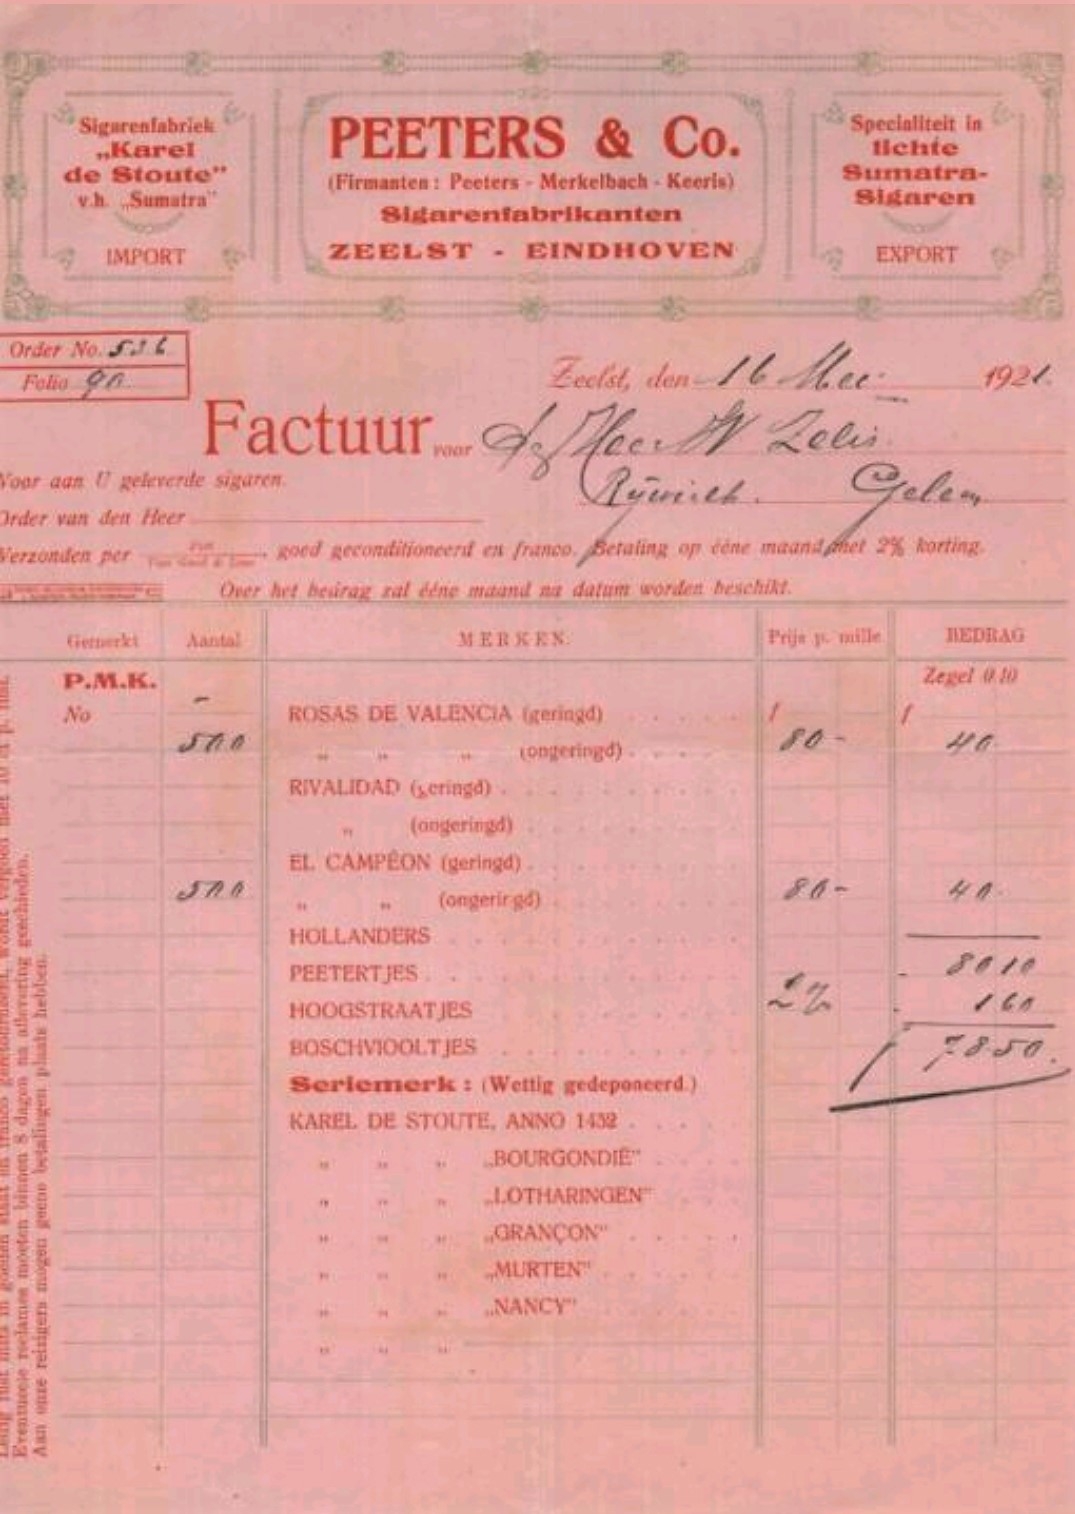 Sigarenfabriek
„Karel
de Stoute”
v.h. „Sumatra”
IMPORT
PEETERS & Co.
(Firmanten: Peeters - Merkelbach - Keeris)
Sigarenfabrikanten
ZEELST - EINDHOVEN
Specialiteit in
lichte
Sumatra-
Sigaren
EXPORT
Order No. 536
Folio 90
Zeelst, den 16 Mei 1921.
Factuur voor
Zelis
Geleen
Voor aan U geleverde sigaren.
Order van den Heer
Verzonden per goed geconditioneerd en franco. Betaling op ééne maand met 2% korting.
Over het bedrag zal ééne maand na datum worden beschikt.
Gemerkt Aantal MERKEN. Prijs p. mille BEDRAG
P.M.K. Zegel 0.10
No - ROSAS DE VALENCIA (geringd) f f
500 „ „ „ (ongeringd) 80- 40
RIVALIDAD (geringd)
„ (ongeringd)
EL CAMPÊON (geringd)
500 „ „ (ongeringd) 80- 40.
HOLLANDERS
PEETERTJES 80 10
HOOGSTRAATJES 2% 1 60
BOSCHVIOOLTJES f 78.50.
Seriemerk: (Wettig gedeponeerd.)
KAREL DE STOUTE, ANNO 1432
„ „ „ „BOURGONDIË”
„ „ „ „LOTHARINGEN”
„ „ „ „GRANÇON”
„ „ „ „MURTEN”
„ „ „ „NANCY”
„ „ „
Eventueele reclames moeten binnen 8 dagen na aflevering geschieden.
Aan onze reizigers mogen geene betalingen plaats hebben.